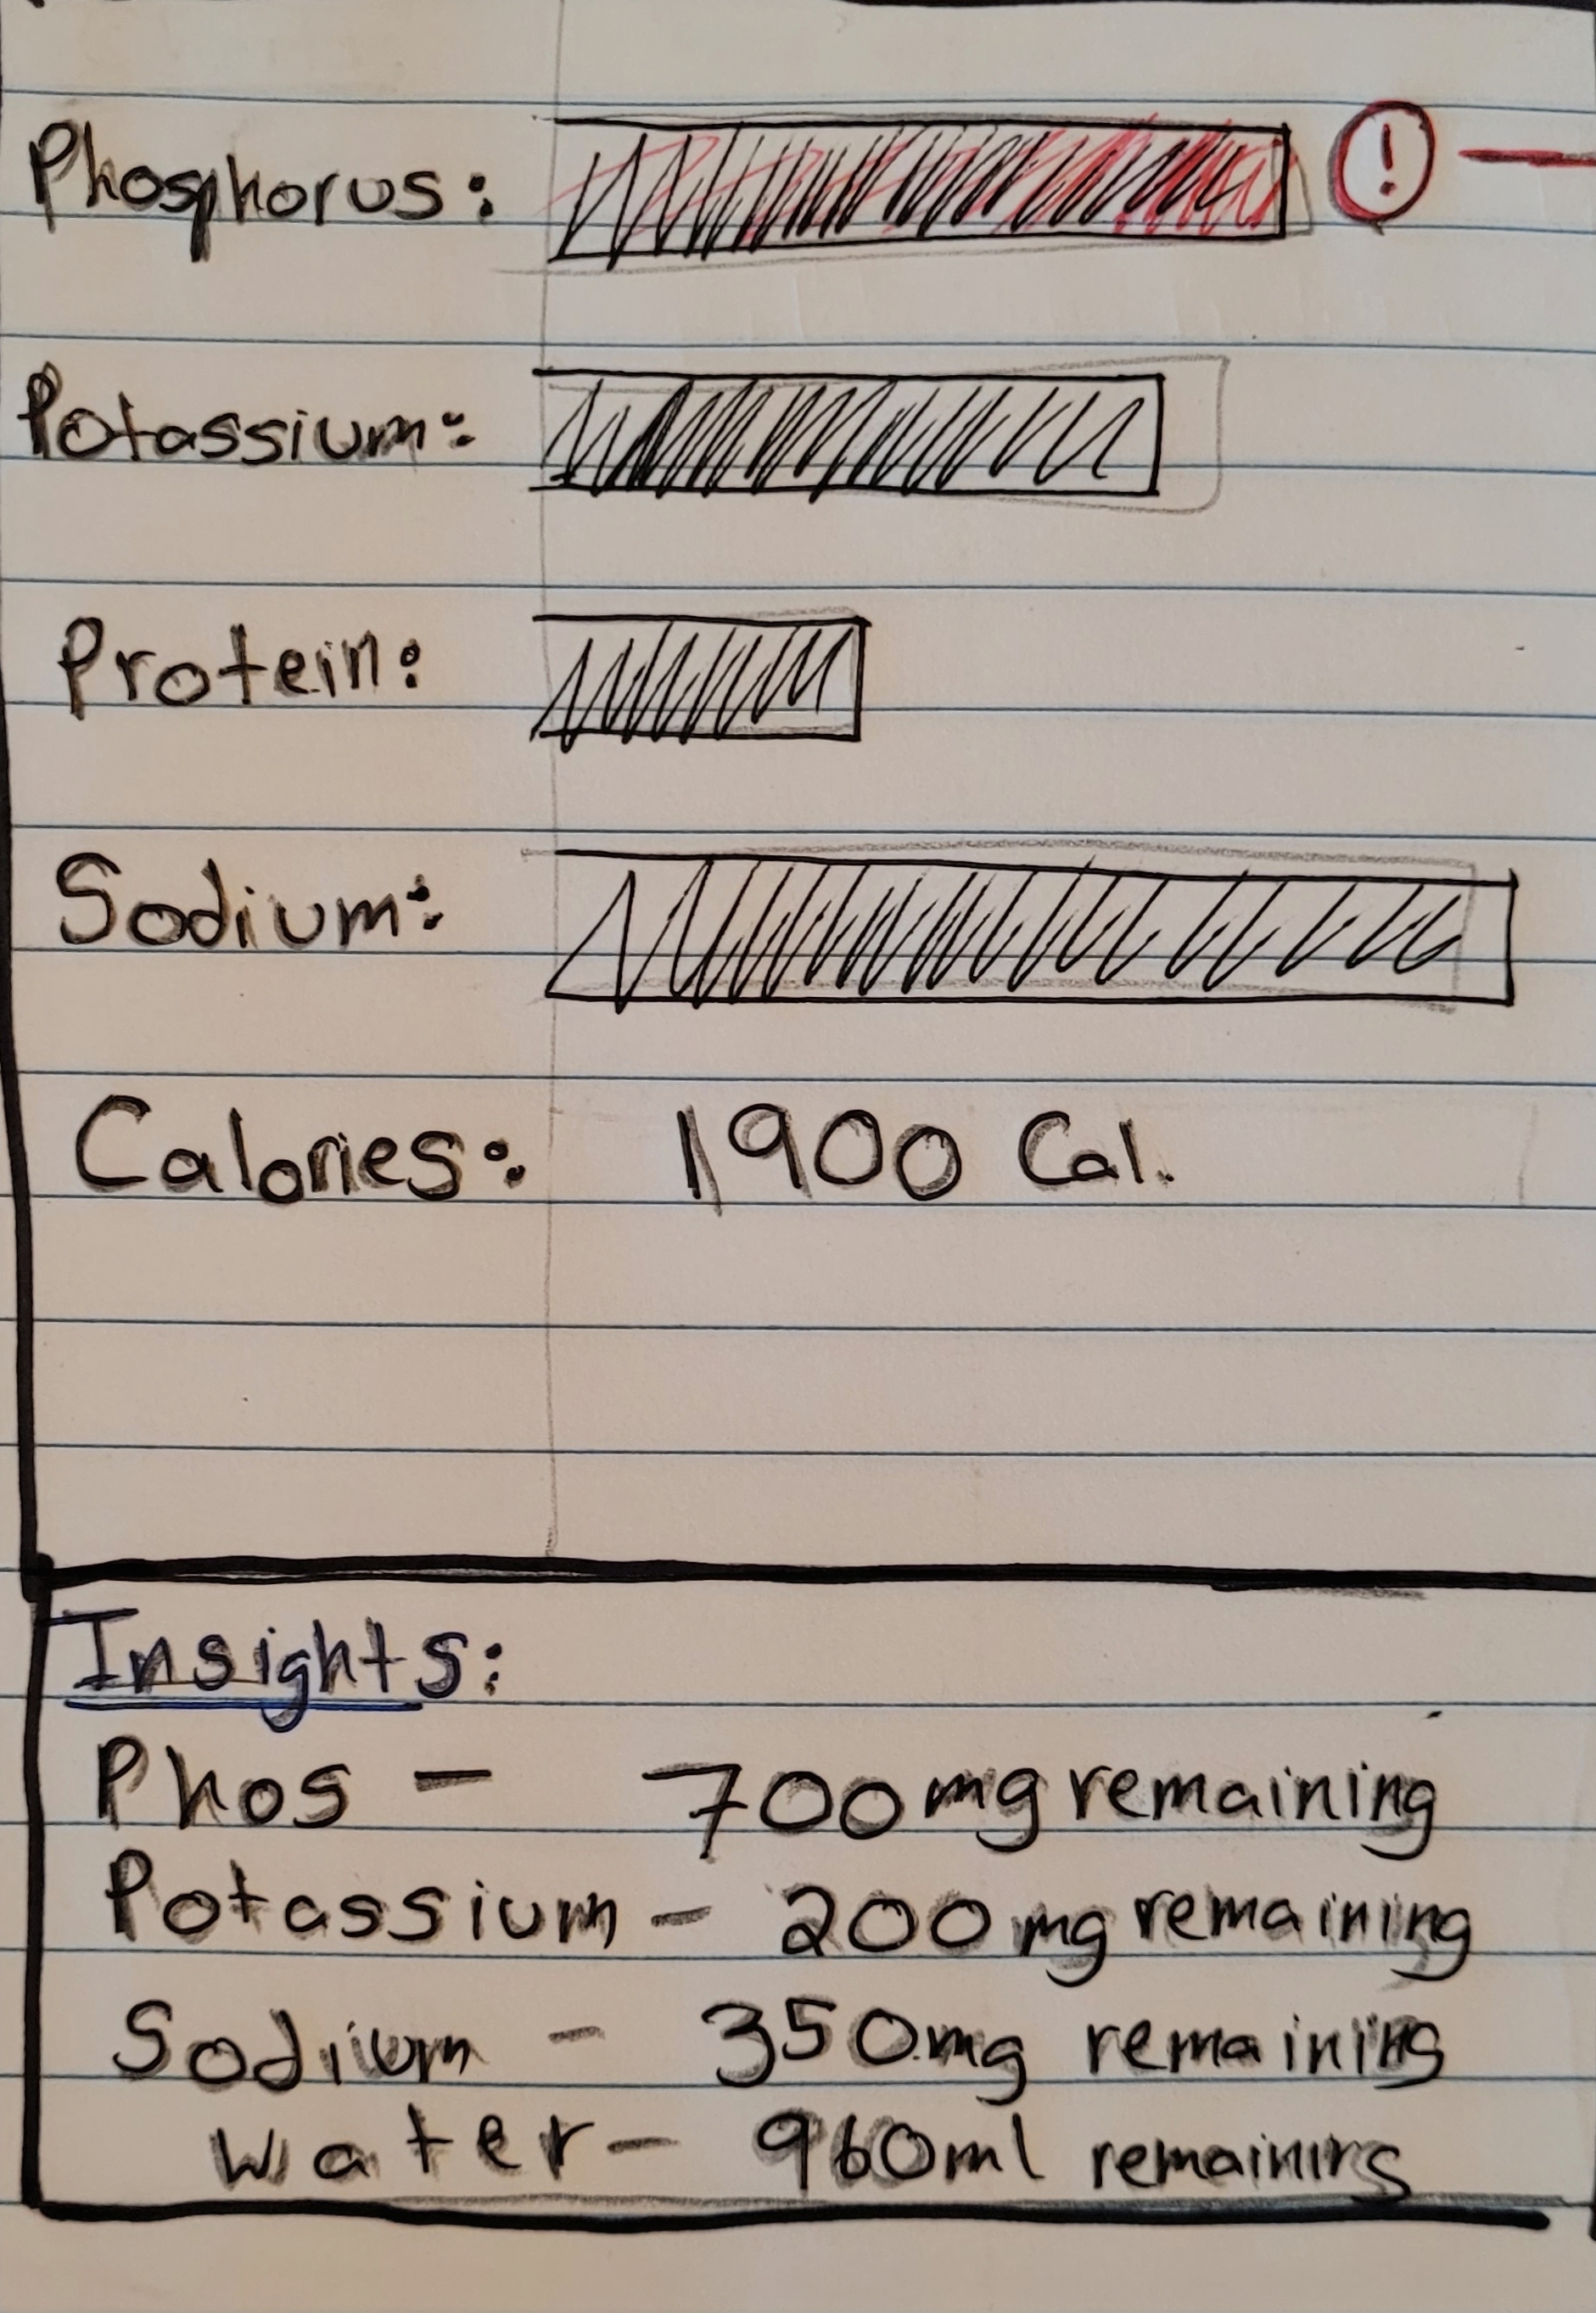 Phosphorus: !
Potassium:
Protein:
Sodium:
Calories: 1900 Cal.
Insights:
Phos - 700mg remaining
Potassium - 200mg remaining
Sodium - 350mg remaining
Water - 960ml remaining